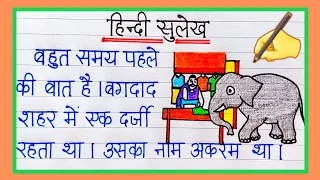 हिन्दी सुलेख
बहुत समय पहले
की बात है। बगदाद
शहर में एक दर्जी
रहता था। उसका नाम अकरम था।